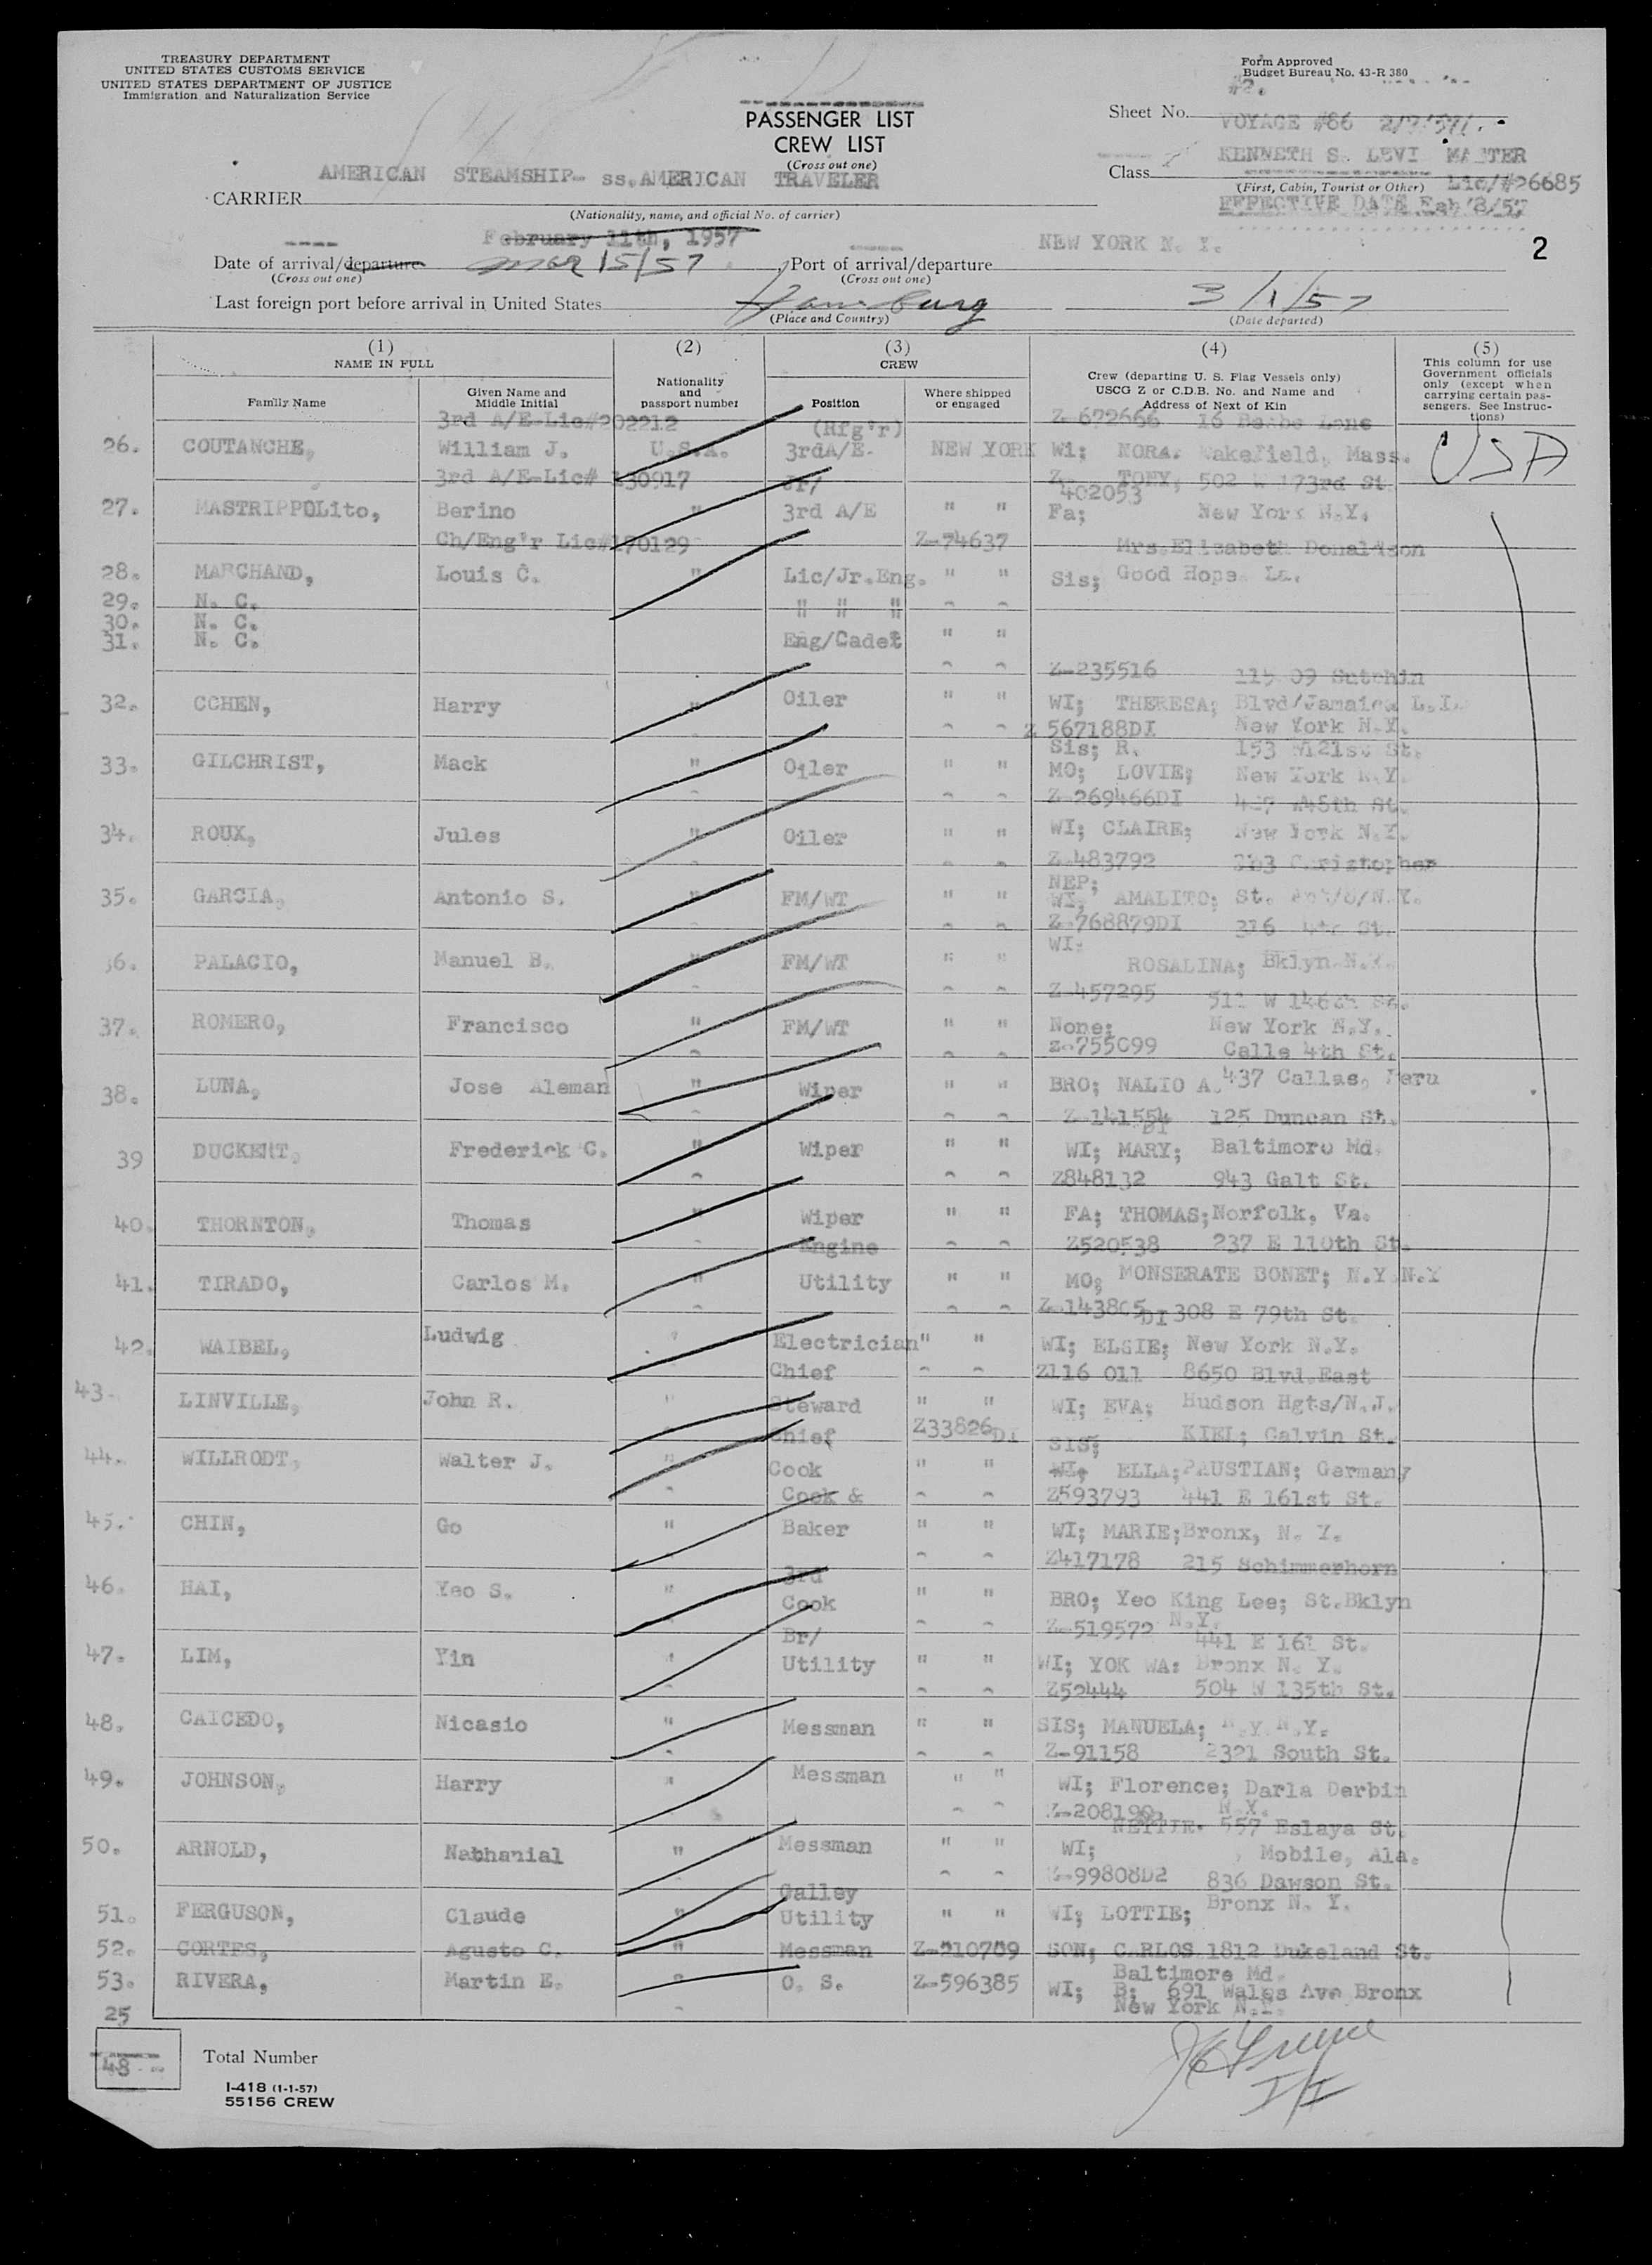 TREASURY DEPARTMENT
UNITED STATES CUSTOMS SERVICE
UNITED STATES DEPARTMENT OF JUSTICE
Immigration and Naturalization Service
Form Approved
Budget Bureau No. 43-R 380
#2.
PASSENGER LIST
CREW LIST
(Cross out one)
Sheet No.
VOYAGE #86
KENNETH S. LEVI MASTER
Class
(First, Cabin, Tourist or Other) Lic/#26685
EFFECTIVE DATE Feb 8/57
AMERICAN STEAMSHIP- ss.AMERICAN TRAVELER
CARRIER
(Nationality, name, and official No. of carrier)
February 11th, 1957
NEW YORK N. Y.
2
Date of arrival/departure Mar 15/57
Port of arrival/departure
(Cross out one)
(Cross out one)
Last foreign port before arrival in United States Hamburg 3/1/57
(Place and Country)
(Date departed)
(1) NAME IN FULL
(2)
(3) CREW
(4)
(5)
Family Name
Given Name and Middle Initial
Nationality and passport number
Position
Where shipped or engaged
Crew (departing U. S. Flag Vessels only) USCG Z or C.D.B. No. and Name and Address of Next of Kin
This column for use Government officials only (except when carrying certain passengers. See Instructions)
3rd A/E-Lic#202212 (Rfg'r) Z-672666 16 Lane
26. COUTANCHE, William J. U.S.A. 3rdA/E- NEW YORK Wi; NORA. Wakefield, Mass. USA
3rd A/E-Lic# 130917 Jr/ Z-402053 TONY, 502 W 173rd St.
27. MASTRIPPOLito, Berino " 3rd A/E " " Fa; New York N.Y.
Ch/Eng'r Lic#170129 Z-74637 Mrs.Elizabeth Donaldson
28. MARCHAND, Louis C. " Lic/Jr.Eng. " " Sis; Good Hope La.
29. N. C. " " "
30. N. C.
31. N. C. Eng/Cadet " "
Z-235516 115 09 Sutphin
32. COHEN, Harry " Oiler " " WI; THERESA; Blvd/Jamaica L.I.
Z 567188DI New York N.Y.
Sis; R. 153 W121st St.
33. GILCHRIST, Mack " Oiler " " MO; LOVIE; New York N.Y.
Z-269466DI St.
34. ROUX, Jules " Oiler " " WI; CLAIRE; New York N.Y.
Z-483792 Christopher
NEP;
35. GARCIA, Antonio S. " FM/WT " " WI, AMALITO; St. N.Y.
Z-768879DI St.
WI;
36. PALACIO, Manuel B. " FM/WT " " ROSALINA; Bklyn.N.Y.
Z-457295 511 W 146th St.
37. ROMERO, Francisco " FM/WT " " None; New York N.Y.
z-755099 Calle 4th St.
38. LUNA, Jose Aleman " Wiper " " BRO; NALIO A. 437 Callas, Peru
Z-141554 DI 125 Duncan St.
39 DUCKERT, Frederick C. " Wiper " " WI; MARY; Baltimore Md.
Z848132 943 Galt St.
40. THORNTON, Thomas " Wiper " " FA; THOMAS;Norfolk, Va.
Engine Z520538 237 E 110th St.
41. TIRADO, Carlos M. " Utility " " MO; MONSERATE BONET; N.Y.N.Y
Z-143805DI 308 E 79th St.
42. WAIBEL, Ludwig " Electrician " " WI; ELSIE; New York N.Y.
Chief Z116 011 8650 Blvd.East
43. LINVILLE, John R. " Steward " " WI; EVA; Hudson Hgts/N.J.
Chief Z33826DI SIS; KIEL; Calvin St.
44. WILLRODT, Walter J. " Cook " " WI, ELLA;PAUSTIAN; Germany
Cook & Z593793 441 E 161st St.
45. CHIN, Go " Baker " " WI; MARIE;Bronx, N. Y.
3rd Z417178 215 Schimmerhorn
46. HAI, Yeo S. " Cook " " BRO; Yeo King Lee; St.Bklyn N.Y.
Br/ Z-519572 441 E 161 St.
47. LIM, Yin " Utility " " WI; YOK WA: Bronx N. Y.
504 W 135th St.
48. CAICEDO, Nicasio " Messman " " SIS; MANUELA; N.Y.N.Y.
Z-91158 2321 South St.
49. JOHNSON, Harry " Messman " " WI; Florence; Darla Derbin N.Y.
NETTIE. 557 Eslaya St.
50. ARNOLD, Nathanial " Messman " " WI; Mobile, Ala.
Z-99808D2 836 Dawson St.
Galley Bronx N. Y.
51. FERGUSON, Claude " Utility " " WI; LOTTIE;
52. CORTES, Agusto C. " Messman SON; CARLOS 1812 Dukeland St.
Baltimore Md.
53. RIVERA, Martin E. " O. S. Z-596385 WI; B; 691 Wales Ave Bronx
New York N.Y.
25
48
Total Number
I-418 (1-1-57)
55156 CREW